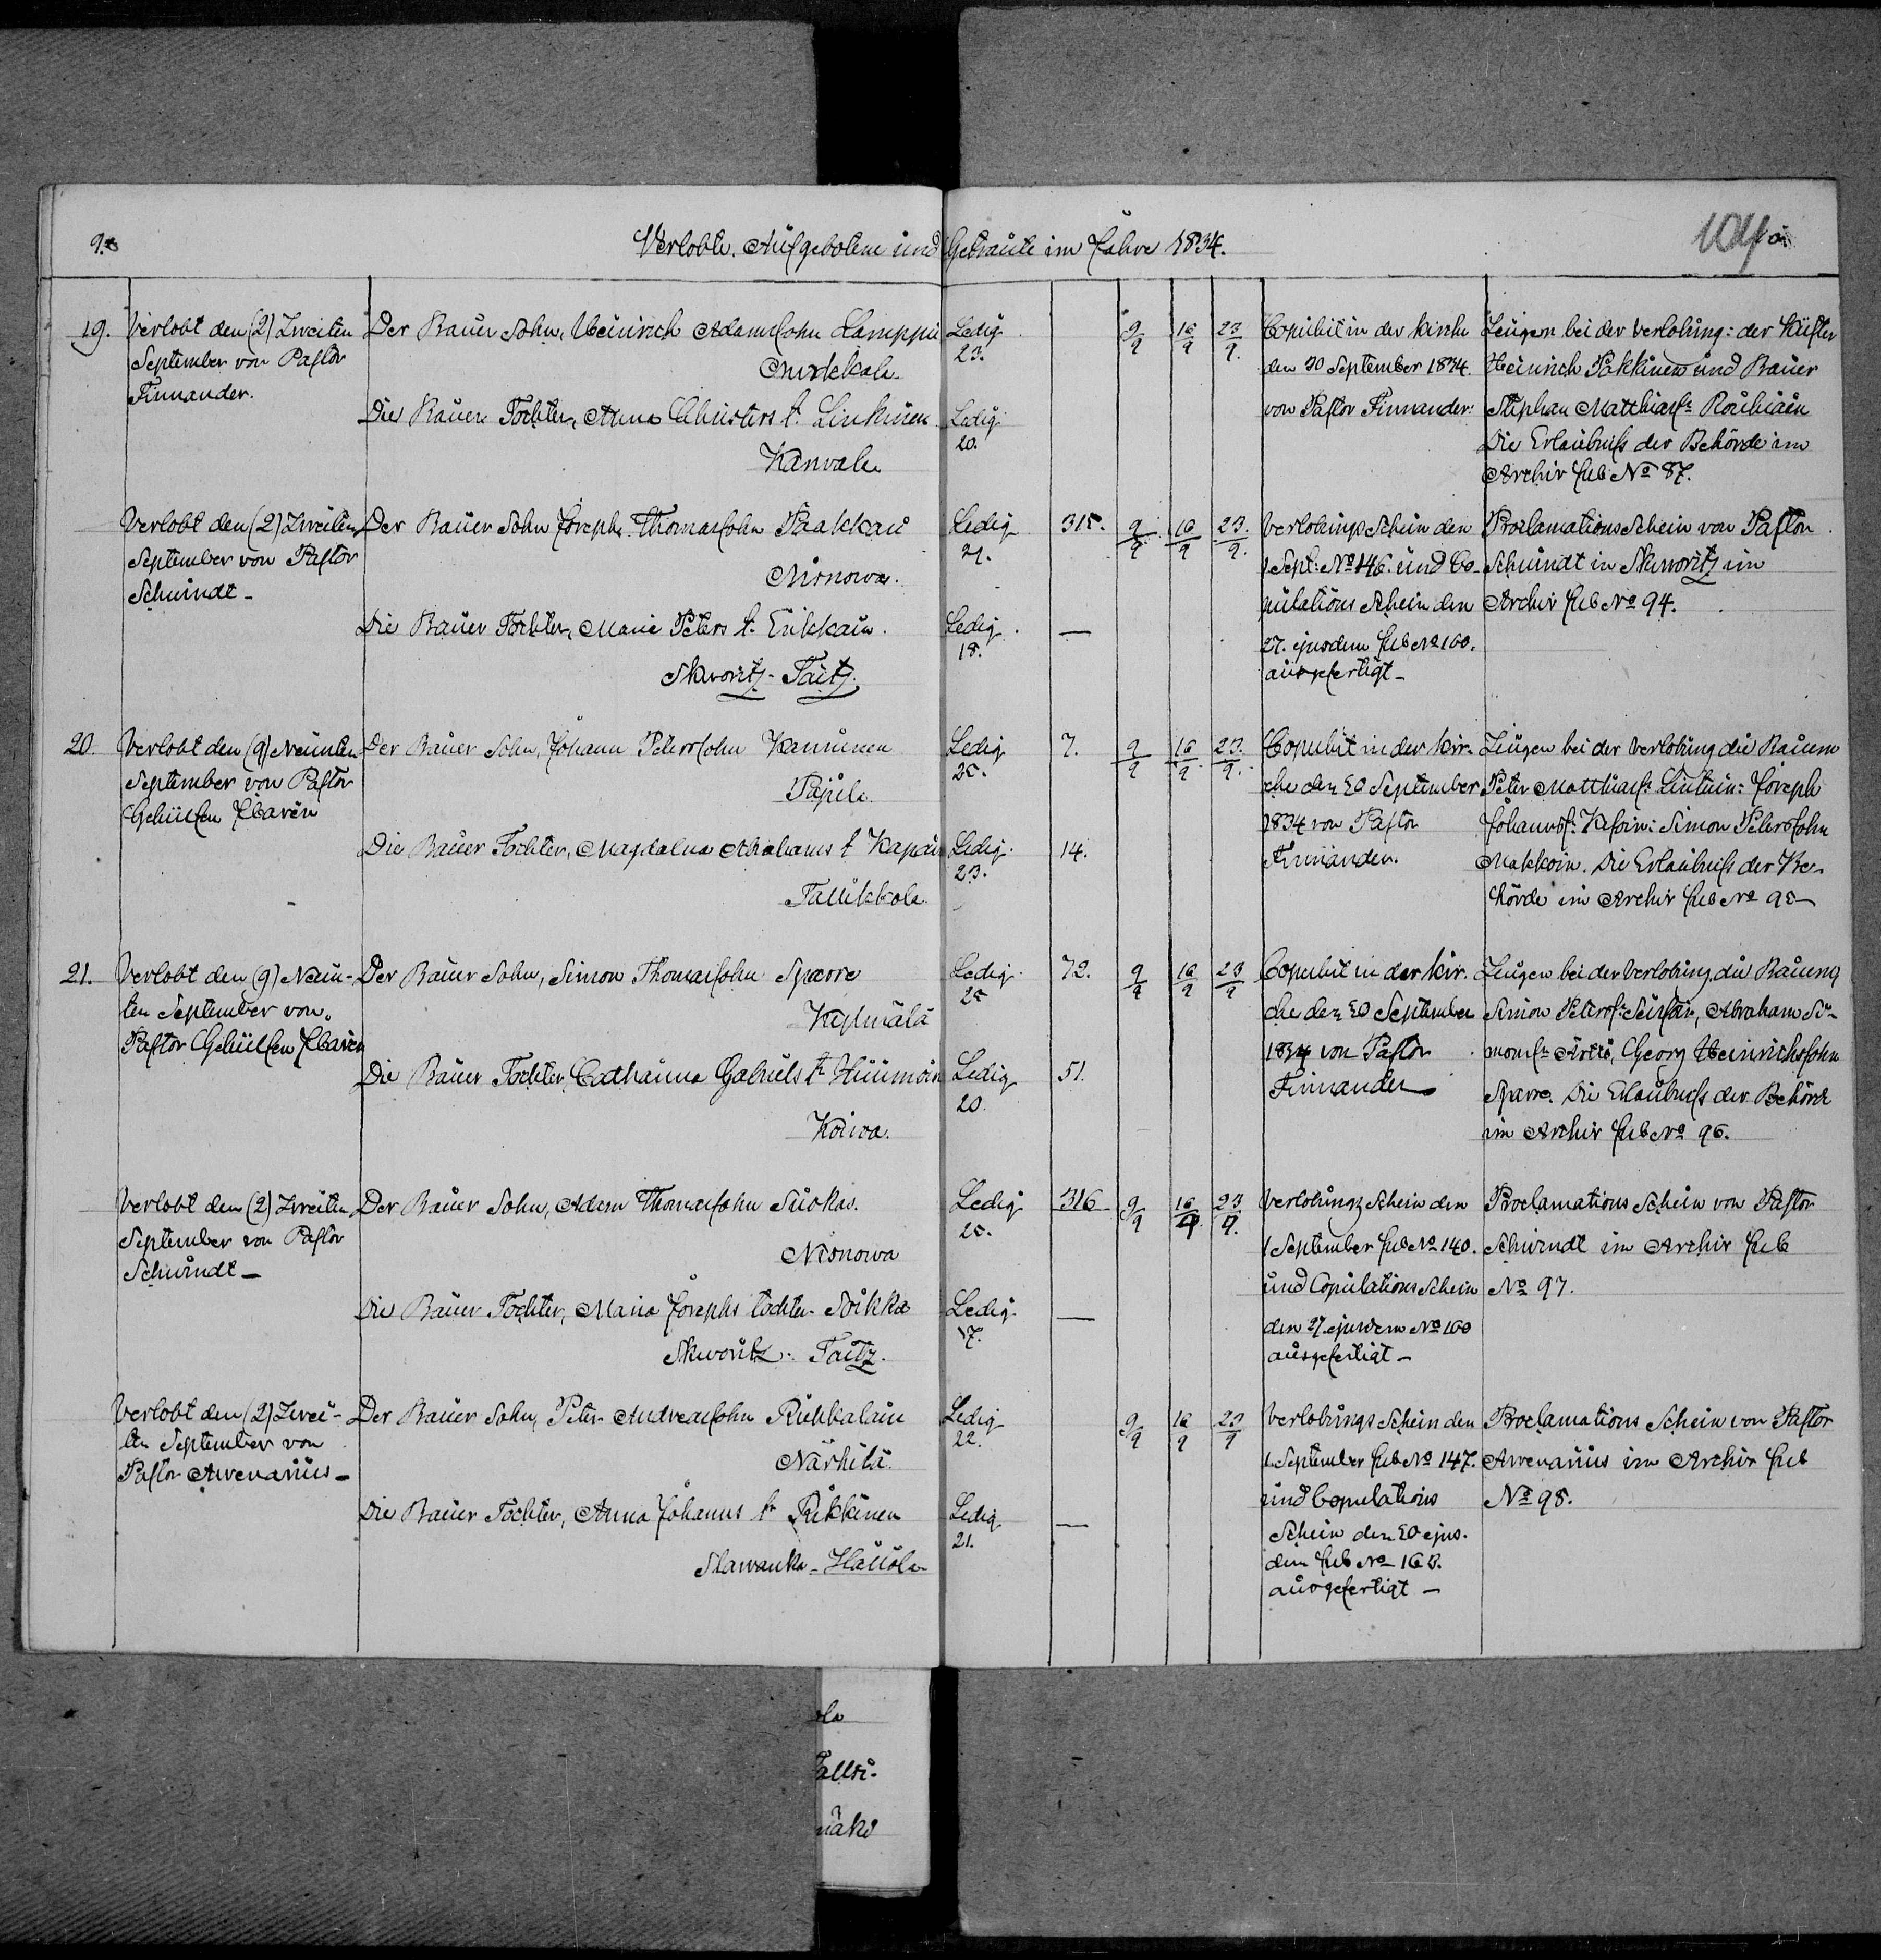 9.
Verlobte. Aufgebotene und Getraute im Jahre 1834.
104
19.
Verlobt den (2) Zweiten
September von Pastor
Finnander.
Der Bauer Sohn, Heinrich Adamssohn Lamppu
Die Bauer Tochter, Anna Christers t. Linkinen
Kanvala
Ledig
23.
Ledig
20.
9/9 16/9 23/9.
Copulirt in der Kirche
den 30 September 1834.
von Pastor Finnander.
Zeugen bei der Verlobung: der Küster
Heinrich Pakkinen und Bauer
Stephan Matthiass. Rouhiain
Die Erlaubniss der Behörde im
Archiv sub No 87.
Verlobt den (2) Zweiten
September von Pastor
Schwindt-
Der Bauer Sohn Joseph Thomassohn Paakkari
Nisnowa.
Die Bauer Tochter, Maria Peters t. Erikkain.
Skworitz-Taitz.
Ledig
21.
Ledig
18.
315.
—
9/9 16/9 23/9.
Verlobungs Schein den
1 Sept: No 146. und Co-
pulations Schein den
27. ejusdem sub No 160.
ausgefertigt-
Proclamations Schein von Pastor
Schwindt in Skworitz im
Archiv sub No 94.
20.
Verlobt den (9) Neunten
September von Pastor
Gehülfen Haven
Der Bauer Sohn, Johann Peterssohn Kamunen
Papila
Die Bauer Tochter, Magdalena Abrahams t Kapain
Tallikkola
Ledig
25.
Ledig.
23.
7.
14.
9/9 16/9 23/9.
Copulirt in der Kir-
che den 30 September
1834 von Pastor
Finnander.
Zeugen bei der Verlobung die Bauern
Peter Matthiass. Lintuin: Joseph
Johannss. Simon Peterssohn
Makkoin. Die Erlaubniss der Be-
hörde im Archiv sub No 95-
21.
Verlobt den (9) Neun-
ten September von
Pastor Gehülfen Haven
Der Bauer Sohn, Simon Thomassohn Sparre
Kylmälä
Die Bauer Tochter, Catharina Gabriels t.
Koiwa.
Ledig
25
Ledig
20.
72.
51.
9/9 16/9 23/9
Copulirt in der Kir-
che den 30 September
1834 von Pastor
Finnander
Zeugen bei der Verlobung die Bauern
Simon Peterss. Abraham Si-
monss. Georg Heinrichssohn
Sparre. Die Erlaubniss der Behörde
im Archiv sub No 96.
Verlobt den (2) Zweiten
September von Pastor
Schwindt-
Der Bauer Sohn, Adam Thomassohn Suokas.
Nisnowa
Die Bauer Tochter, Maria Josephs tochter Soikka
Skworitz. Taitz.
Ledig
25.
Ledig
17.
316
—
9/9 16/9. 23/9.
Verlobungs Schein den
1 September sub No 140.
und Copulations Schein
den 27 ejusdem No 160
ausgefertigt-
Proclamations Schein von Pastor
Schwindt im Archiv sub
No 97.
Verlobt den (2) Zwei-
ten September von
Pastor Avenarius-
Der Bauer Sohn, Peter Andreassohn Riehkalain
Närhilä.
Die Bauer Tochter, Anna Johanns t. Pekkinen
Slawanka-
Ledig
22.
Ledig
21.
—
9/9 16/9 23/9
Verlobungs Schein den
1 September sub No 147.
und Copulations
Schein den 30 ejus-
dem sub No 163.
ausgefertigt-
Proclamations Schein von Pastor
Avenarius im Archiv sub
No 98.